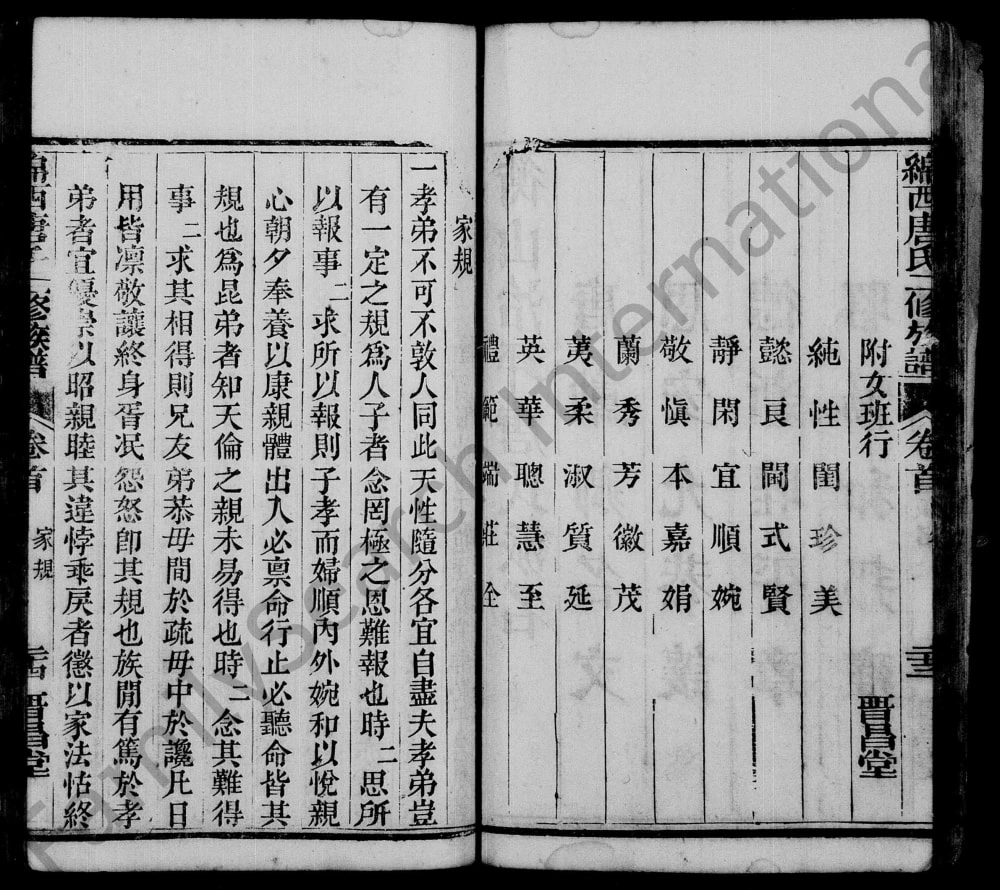 綿西唐氏二修族譜
卷首
二十三
晋昌堂
附女班行
純性閨珍美
懿良閫式賢
靜閑宜順婉
敬慎本嘉娟
蘭秀芳徽茂
荑柔淑質延
英華聰慧至
禮範端莊全
家規
一孝弟不可不敦人同此天性隨分各宜自盡夫孝弟豈
有一定之規為人子者念罔極之恩難報也時二思所
以報事二求所以報則子孝而婦順內外婉和以悅親
心朝夕奉養以康親體出入必禀命行止必聽命皆其
規也為昆弟者知天倫之親未易得也時二念其難得
事二求其相得則兄友弟恭毋間於疏毋中於讒凡日
用皆凛敬讓終身胥泯怨怒卽其規也族閒有篤於孝
弟者宜優崇以昭親睦其違悖乖戾者懲以家法怙終
綿西唐氏二修族譜
卷首
家規
二十四
晋昌堂
FamilySearch International